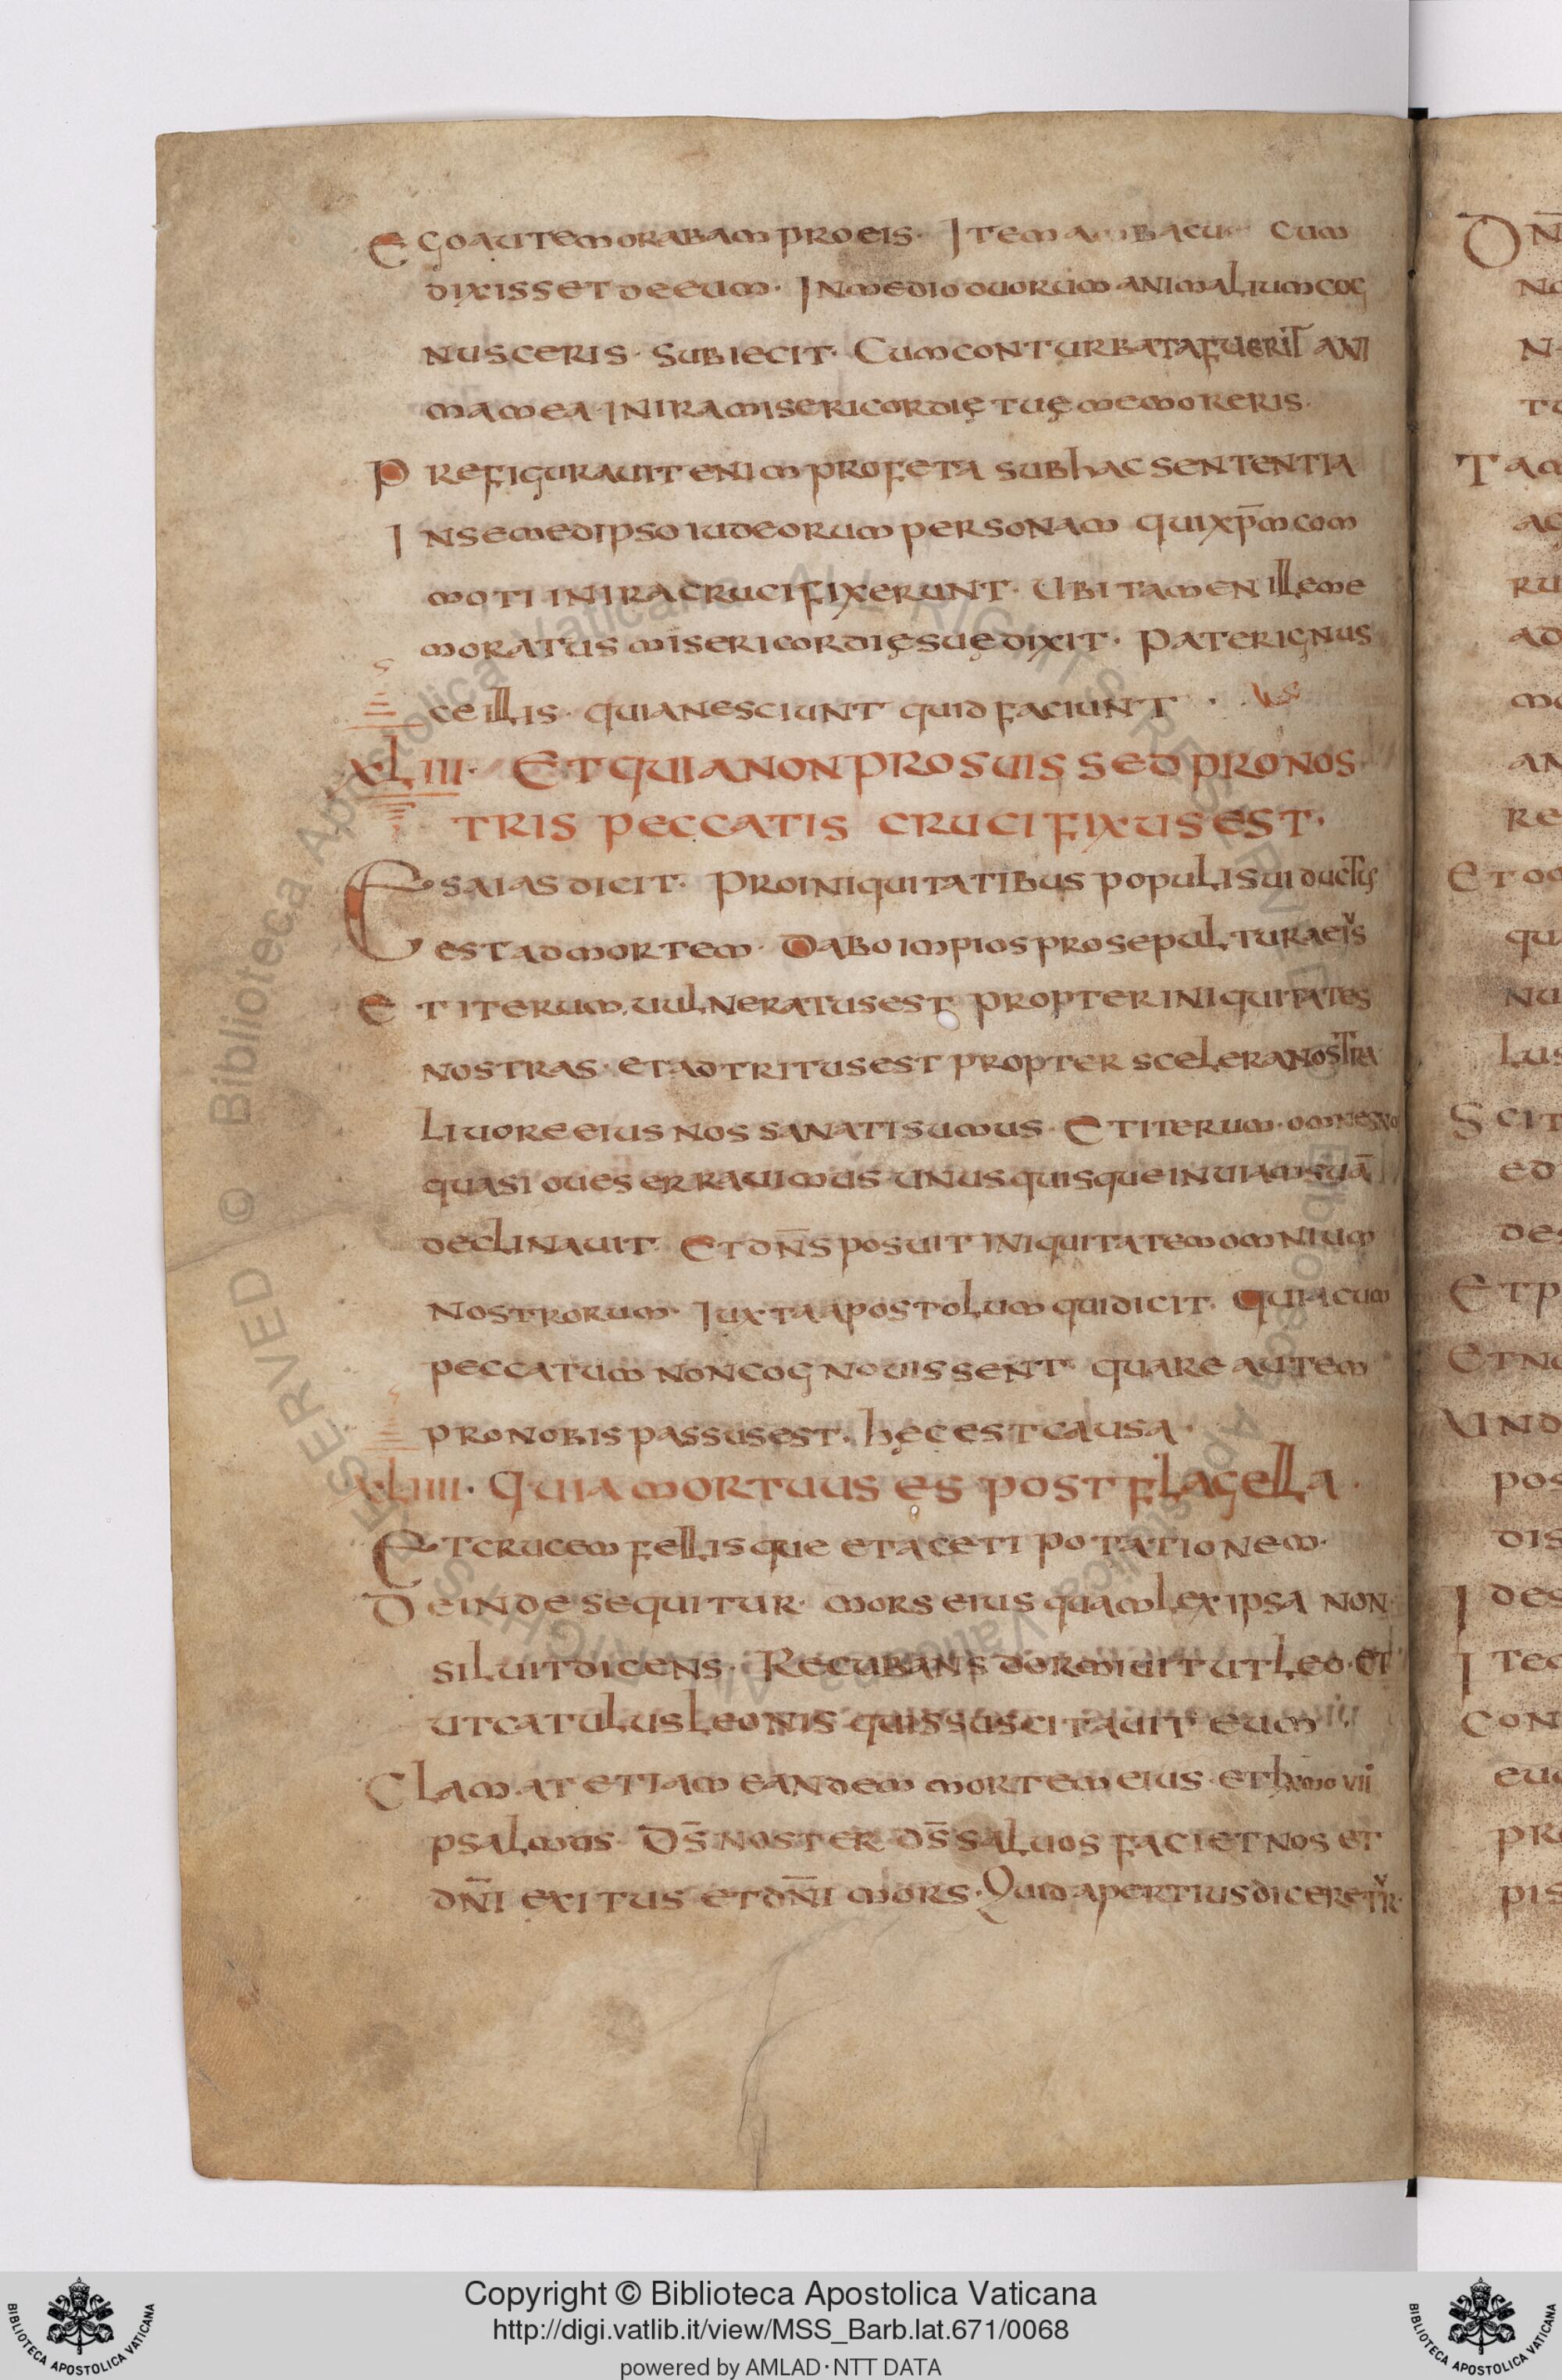 Ego autem orabam pro eis. Item ambacu cum
dixisset de eum. In medio duorum animalium cog
nusceris. Subiecit. Cum conturbata fuerit ani
ma mea in ira misericordię tuę memoreris.
Prefigurauit enim profeta sub hac sententia
In semedipso iudeorum personam qui xp̅m com
moti in ira crucifixerunt. Ubi tamen ille me
moratus misericordię suę dixit. Pater ignus
ce illis. quia nesciunt quid faciunt.
XLIII. Et quia non pro suis sed pro nos
tris peccatis crucifixus est.
Esaias dicit. Pro iniquitatibus populi sui ductus
est ad mortem. Dabo impios pro sepultura eis
Et iterum, uulneratus est propter iniquitates
nostras. et adtritus est propter scelera nostra
Liuore eius nos sanati sumus. Et iterum. omnes
quasi oues errauimus. unus quisque in uiam suā
declinauit. Et dn̅s posuit iniquitatem omnium
nostrorum. Iuxta apostolum qui dicit. Quia cum
peccatum non cognouissent. quare autem
pro nobis passus est. hęc est causa.
XLIIII. Quia mortuus es post flagella.
Et crucem fellisque et aceti potationem.
Deinde sequitur. mors eius quam lex ipsa non
siluit dicens. Recubans dormiuit ut leo. et
ut catulus leonis quis suscitauit eum
Clamat etiam eandem mortem eius. et VII
psalmus. Ds̅ noster ds̅ saluos faciet nos et
dn̅i exitus et dn̅i mors. Quid apertius diceret
Copyright © Biblioteca Apostolica Vaticana
http://digi.vatlib.it/view/MSS_Barb.lat.671/0068
powered by AMLAD · NTT DATA
BIBLIOTECA APOSTOLICA VATICANA
BIBLIOTECA APOSTOLICA VATICANA